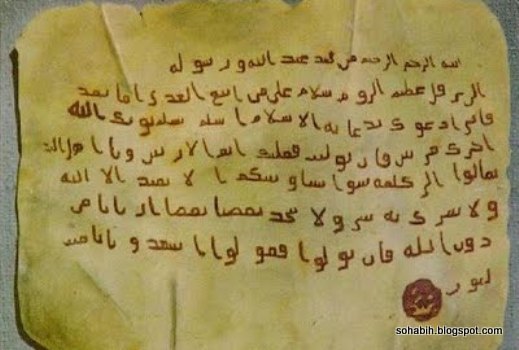 الله الرحمن الرحيم من محمد عبد الله ورسوله
الى هرقل عظيم الروم سلام على من اتبع الهدى اما بعد
فانى ادعوك بدعاية الاسلام اسلم تسلم يوتك الله
اجرك مرتين فان توليت فعليك اثم الاريسين ويا اهل الكتب
تعالوا الى كلمة سوا بيننا وبينكم ا لا نعبد الا الله
ولا نشرك به شيا ولا يتخذ بعضنا بعضا اربابا من
دون الله فان تولوا فقولوا اشهدوا بانا مسـ
لمون
sohabih.blogspot.com